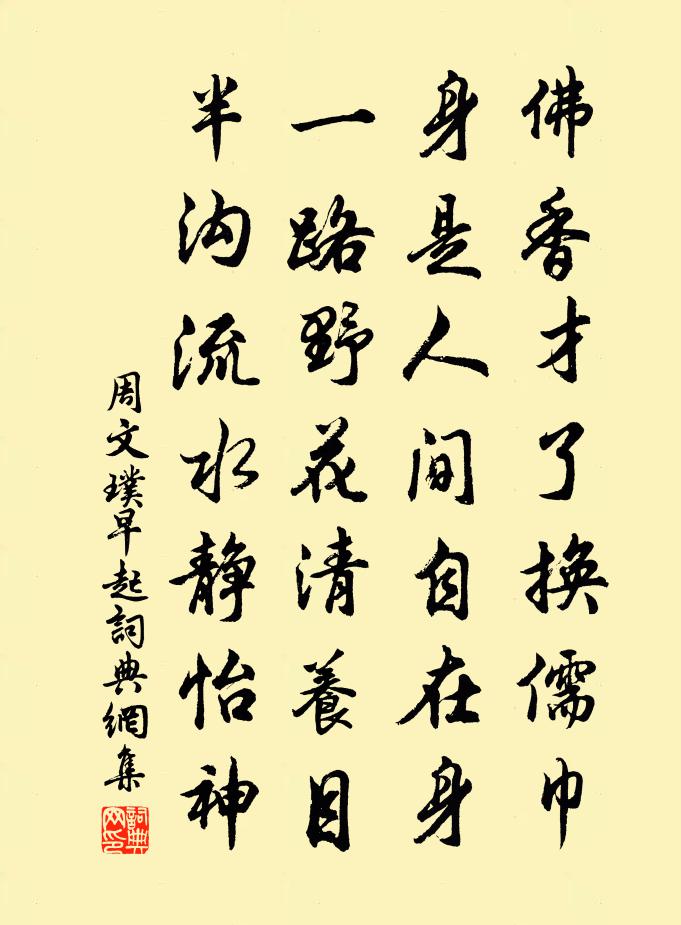 佛香才了換儒巾
身是人間自在身
一路野花清養目
半沟流水静怡神
周文璞早起詞典網集
詞典网印